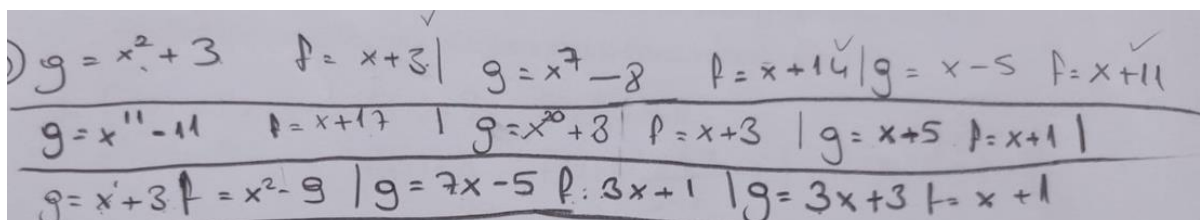 ) g = x² + 3 f = x + 3 | g = x⁷ - 8 f = x + 14 | g = x - 5 f = x + 11
g = x¹¹ - 11 f = x + 17 | g = x²⁰ + 3 f = x + 3 | g = x + 5 f = x + 1 |
g = x + 3 f = x² - 9 | g = 7x - 5 f: 3x + 1 | g = 3x + 3 f = x + 1